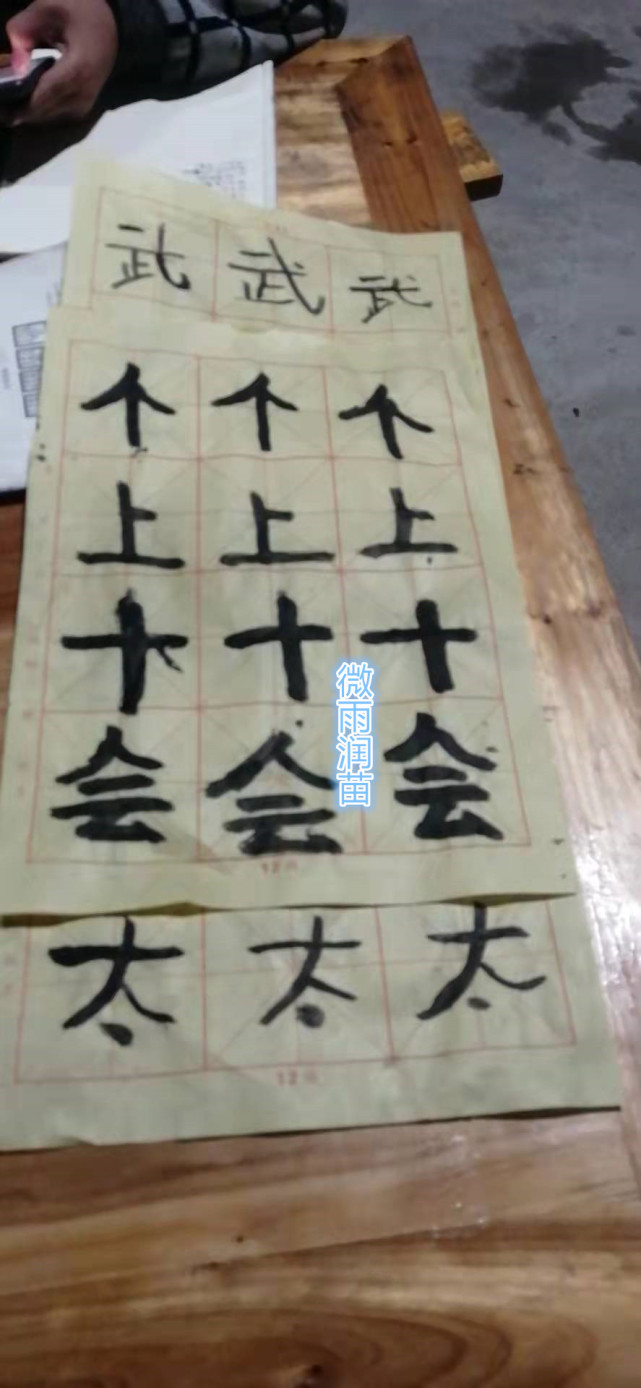 武 武 武
个 个 个
上 上 上
十 十 十
会 会 会
太 太 太
微雨润苗